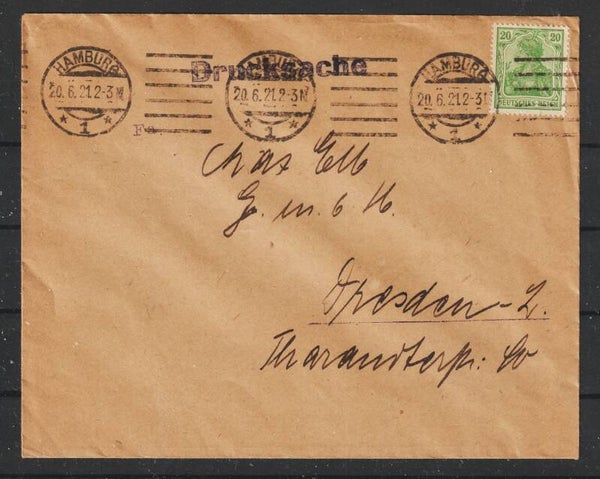 HAMBURG
20.6.21.2-3N
* 1 *
Drucksache
HAMBURG
20.6.21.2-3N
* 1 *
HAMBURG
20.6.21.2-3N
* 1 *
20 20
DEUTSCHES REICH
Fa.
Max Elb
G.m.b.H.
Dresden-L.
Tharandterstr: